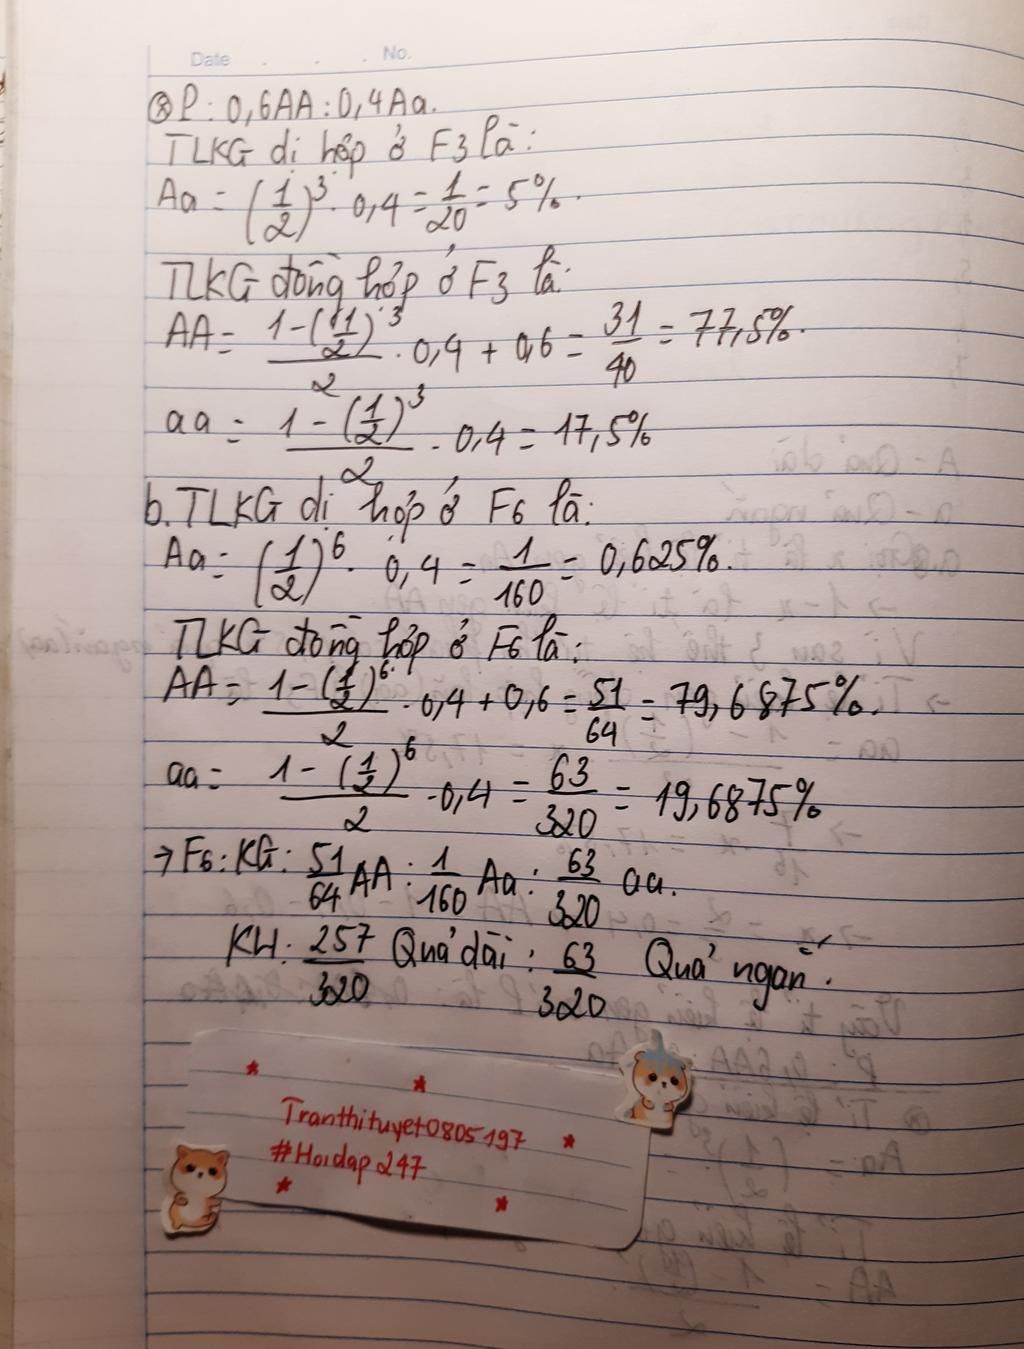 Date . . . No.
⊗ P: 0,6AA : 0,4Aa.
TLKG dị hợp ở F3 là:
Aa = (1/2)^3 . 0,4 = 1/20 = 5%.
TLKG đồng hợp ở F3 là:
AA = (1-(1/2)^3)/2 . 0,4 + 0,6 = 31/40 = 77,5%.
aa = (1-(1/2)^3)/2 . 0,4 = 17,5%
b. TLKG dị hợp ở F6 là:
Aa = (1/2)^6 . 0,4 = 1/160 = 0,625%.
TLKG đồng hợp ở F6 là:
AA = (1-(1/2)^6)/2 . 0,4 + 0,6 = 51/64 = 79,6875%.
aa = (1-(1/2)^6)/2 . 0,4 = 63/320 = 19,6875%
→ F6: KG: 51/64 AA : 1/160 Aa : 63/320 aa.
KH: 257/320 Quả dài : 63/320 Quả ngắn.
Tranthituyet0805197
#Hoidap247